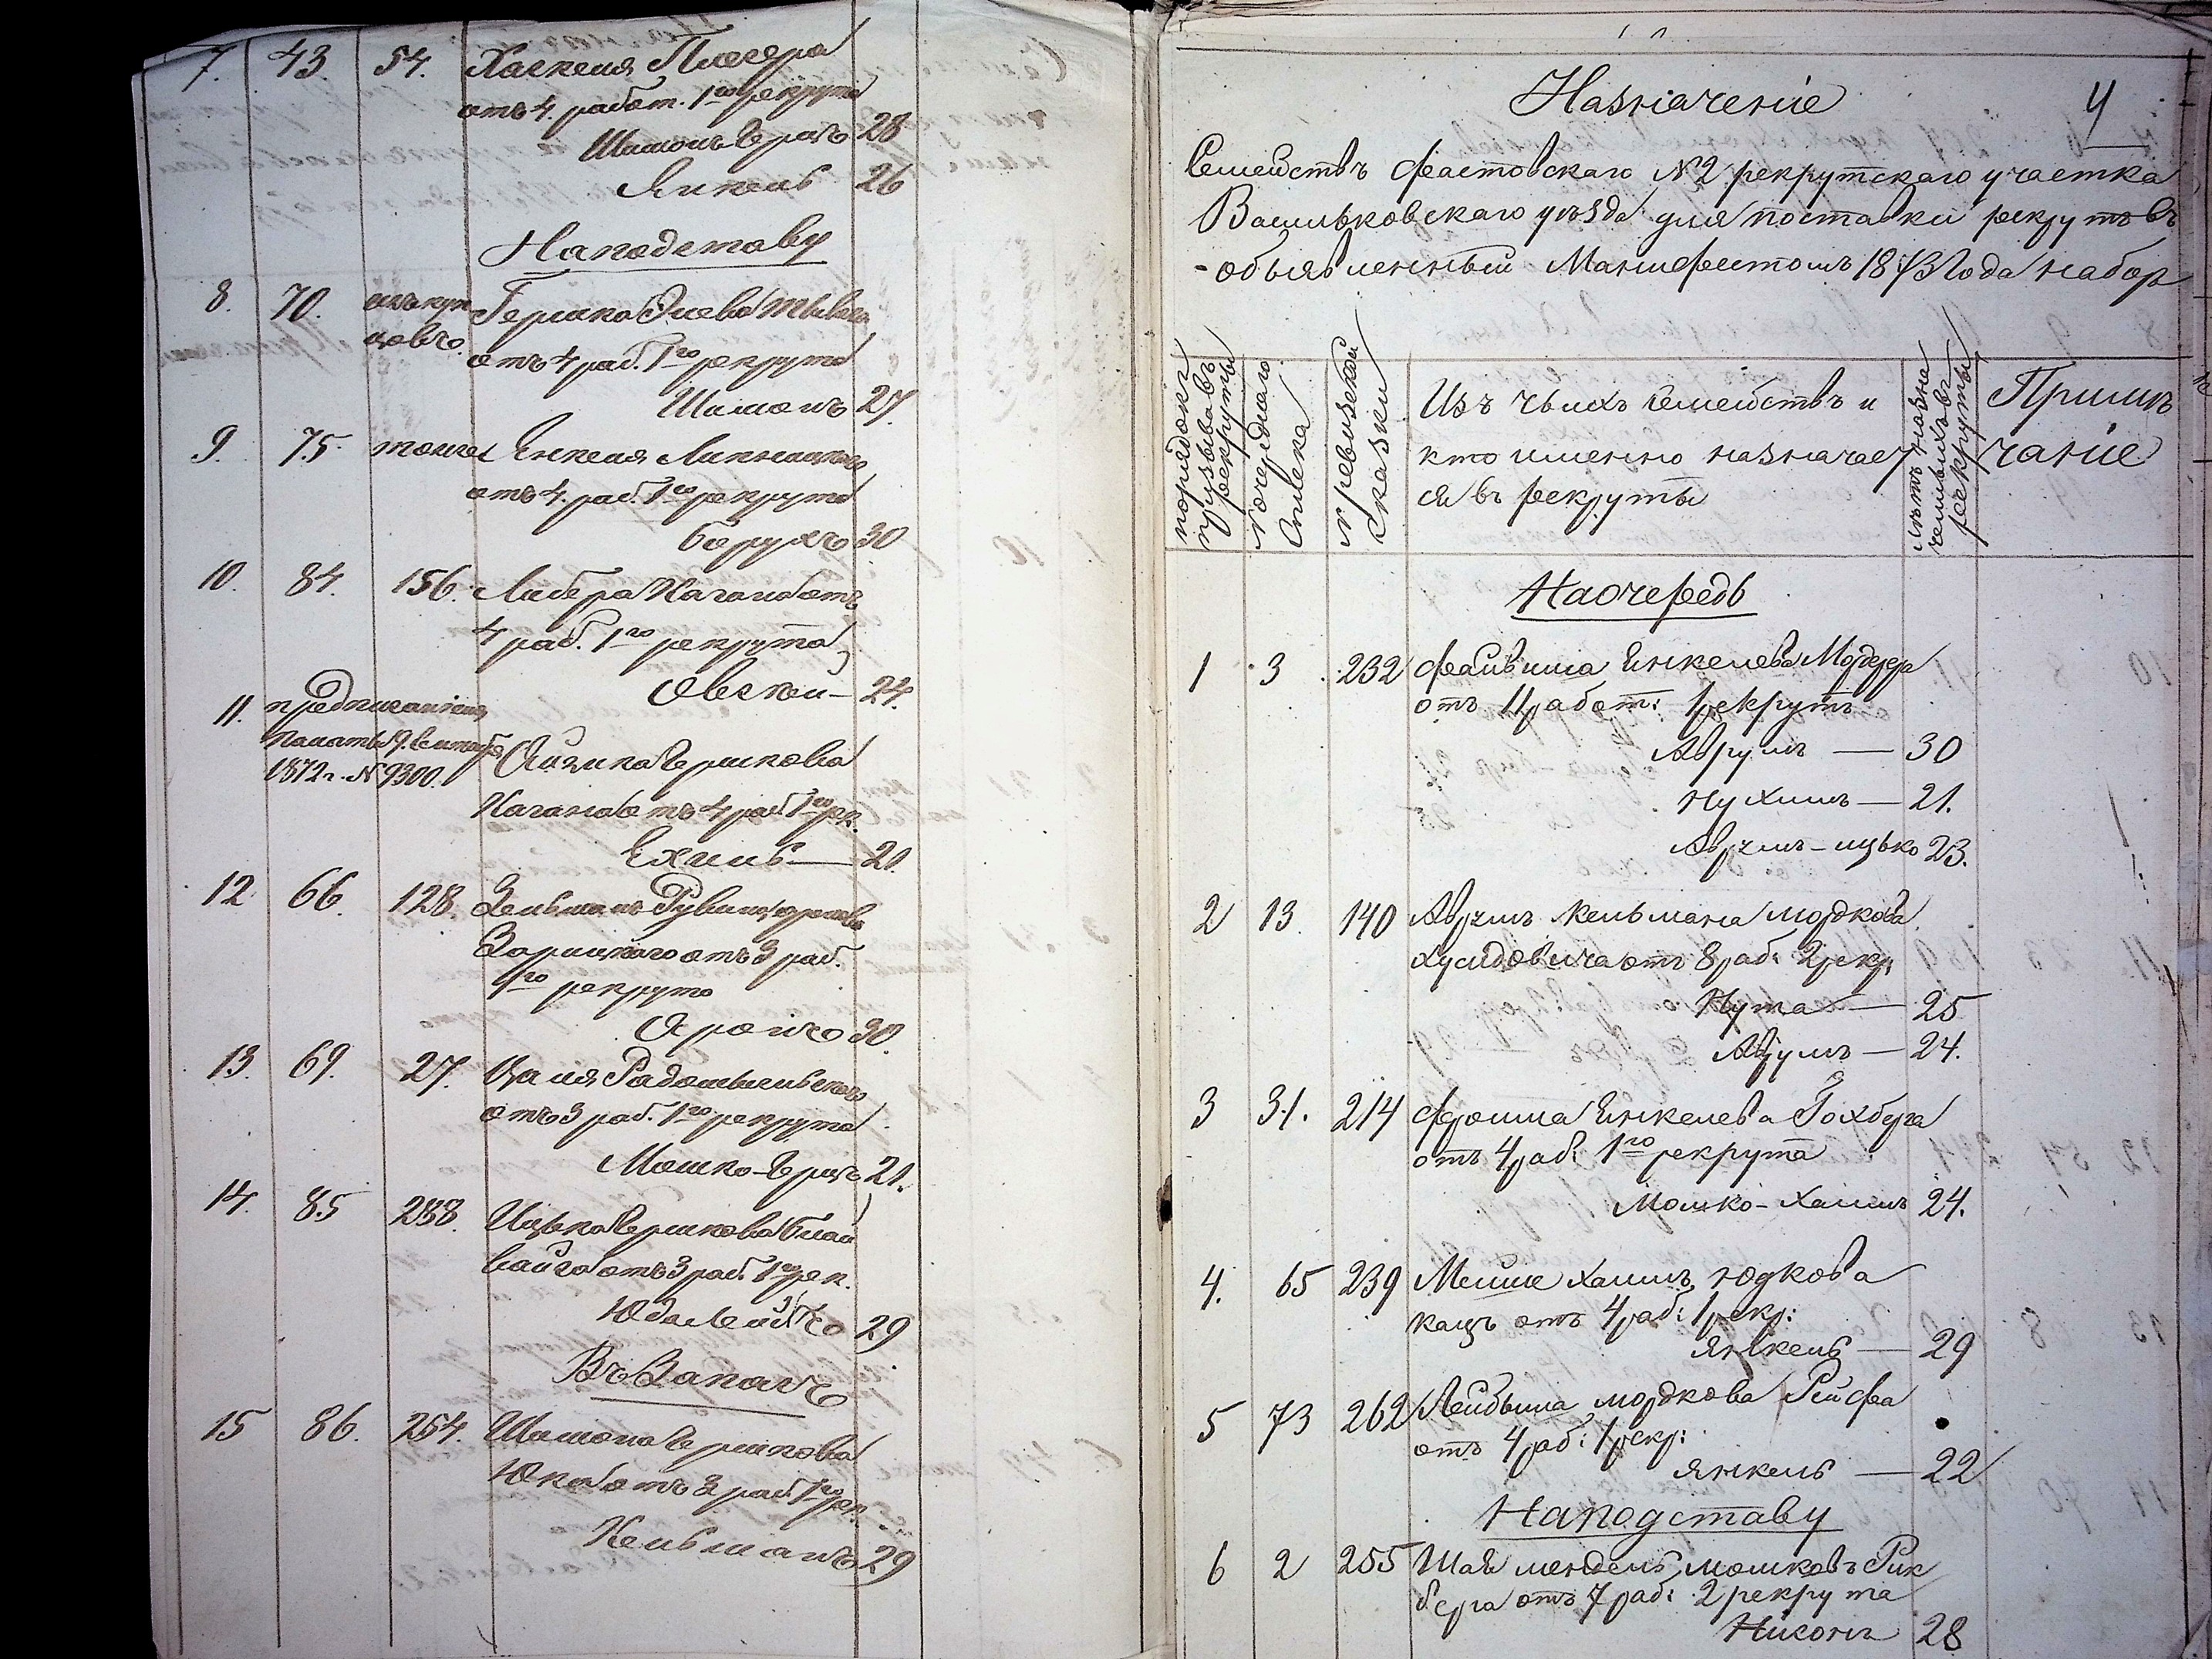 7. 43. 54. Хаскеля Пигера
отъ 4. работ. 1го рекрута
Шимонъ Герш 28
Янкель 26
На подставу
8. 70. изъ куп Гершка
цовъ
отъ 4 раб. 1го рекрута
Шимонъ 27.
9. 75. тоже Енкеля Липницкаго
отъ 4. раб. 1го рекрута
Борухъ 30
10. 84. 156. Лейбера Кагана отъ
4 раб. 1го рекрута
Овсей — 24.
11. предписанiемъ
Палаты 9. Сентября
Айзика Гершкова
1872 г. № 9300.
Кагана отъ 4 раб. 1го рек.
Ехиль — 21.
12. 66. 128. Зельманъ
Зарицкаго отъ 3 раб.
1го рекрута
Аронъ 30.
13. 69. 27. Радомысльскаго
отъ 3 раб. 1го рекрута
Мошко-Герш 21.
14. 85 288. Ицька Гершкова
отъ 3 раб. 1го рек.
29
Въ Запасъ
15 86. 254. Шимона Гершкова
отъ 3 раб. 1го рек.
Кельманъ 29
Назначенiе 4
Семействъ Фастовскаго № 2 рекрутскаго участка
Васильковскаго уѣзда для поставки рекрутъ въ
объявленный Манифестомъ 1873 Года наборъ
порядокъ призыва въ рекруты
№ очереднаго списка
№ ревизской сказки
Изъ чьихъ семействъ и
кто именно назначает
ся въ рекруты
Лѣтъ назначенныхъ въ рекруты
Примѣ
чанiе
На очередь
1 3 232 Файвиша Енкелева
отъ 11 работ: 1 рекрутъ
Аврумъ — 30
Нухимъ — 21.
Аврумъ-ицько 23.
2 13 140 Аврумъ Кельмана Мордкова
Хусидовича отъ 8 раб: 2 рекр:
Нута — 25
Аврумъ — 24.
3 31. 214 Фроима Енкелева Гохберга
отъ 4 раб: 1го рекрута
Мошко-Хаимъ 24.
4. 65 239 Меише Хаимъ Юдкова
Кацъ отъ 4 раб: 1 рекр:
Янкель — 29
5 73 262 Лейбыша Мордкова Рейфа
отъ 4 раб: 1 рекр:
Янкель — 22
На подставу
6 2 255 Шая мендель Мошковъ Рик
берга отъ 7 раб: 2 рекрута
28